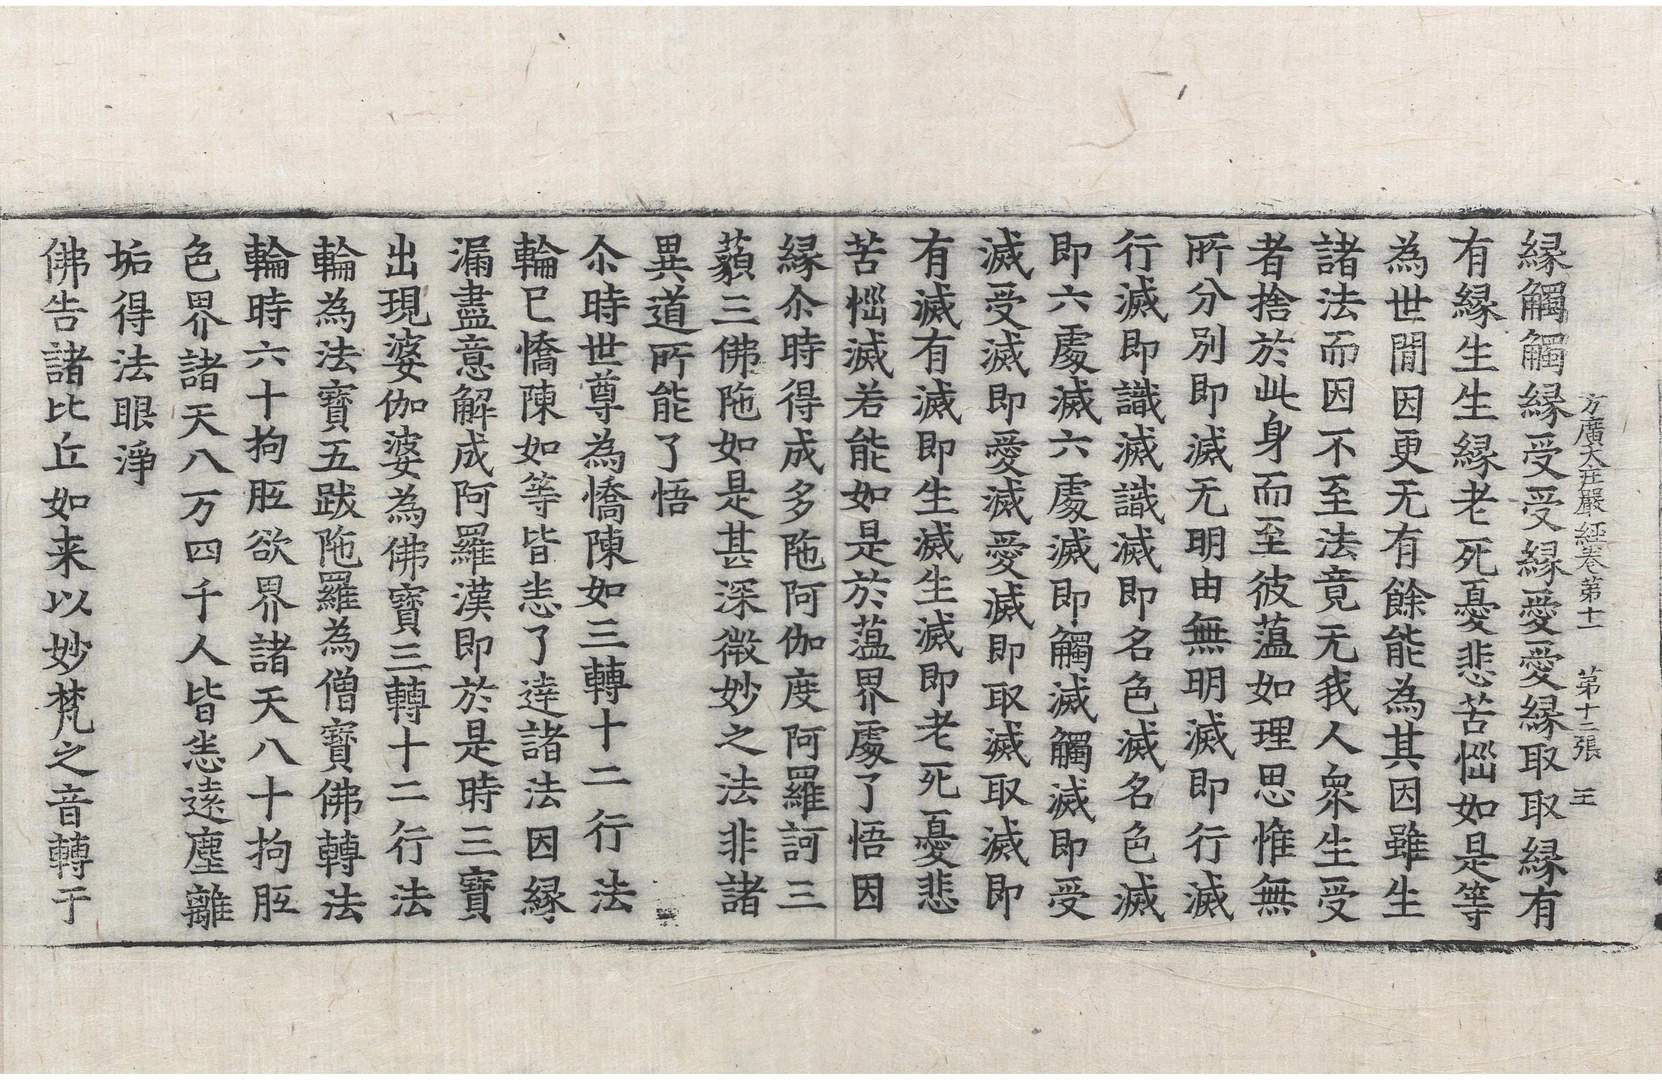 方廣大荘嚴経卷第十一 第十二張 王
縁觸觸縁受受縁愛愛縁取取縁有
有縁生生縁老死憂悲苦惱如是等
為世間因更无有餘能為其因雖生
諸法而因不至法竟无我人衆生受
者捨於此身而至彼薀如理思惟無
所分別即滅无明由無明滅即行滅
行滅即識滅識滅即名色滅名色滅
即六處滅六處滅即觸滅觸滅即受
滅受滅即愛滅愛滅即取滅取滅即
有滅有滅即生滅生滅即老死憂悲
苦惱滅若能如是於薀界處了悟因
縁尒時得成多陁阿伽度阿羅訶三
藐三佛陁如是甚深微妙之法非諸
異道所能了悟
尒時世尊為憍陳如三轉十二行法
輪已憍陳如等皆悉了達諸法因縁
漏盡意解成阿羅漢即於是時三寶
出現婆伽婆為佛寶三轉十二行法
輪為法寶五跋陁羅為僧寶佛轉法
輪時六十拘胝欲界諸天八十拘胝
色界諸天八万四千人皆悉逺塵離
垢得法眼淨
佛告諸比丘如来以妙梵之音轉于